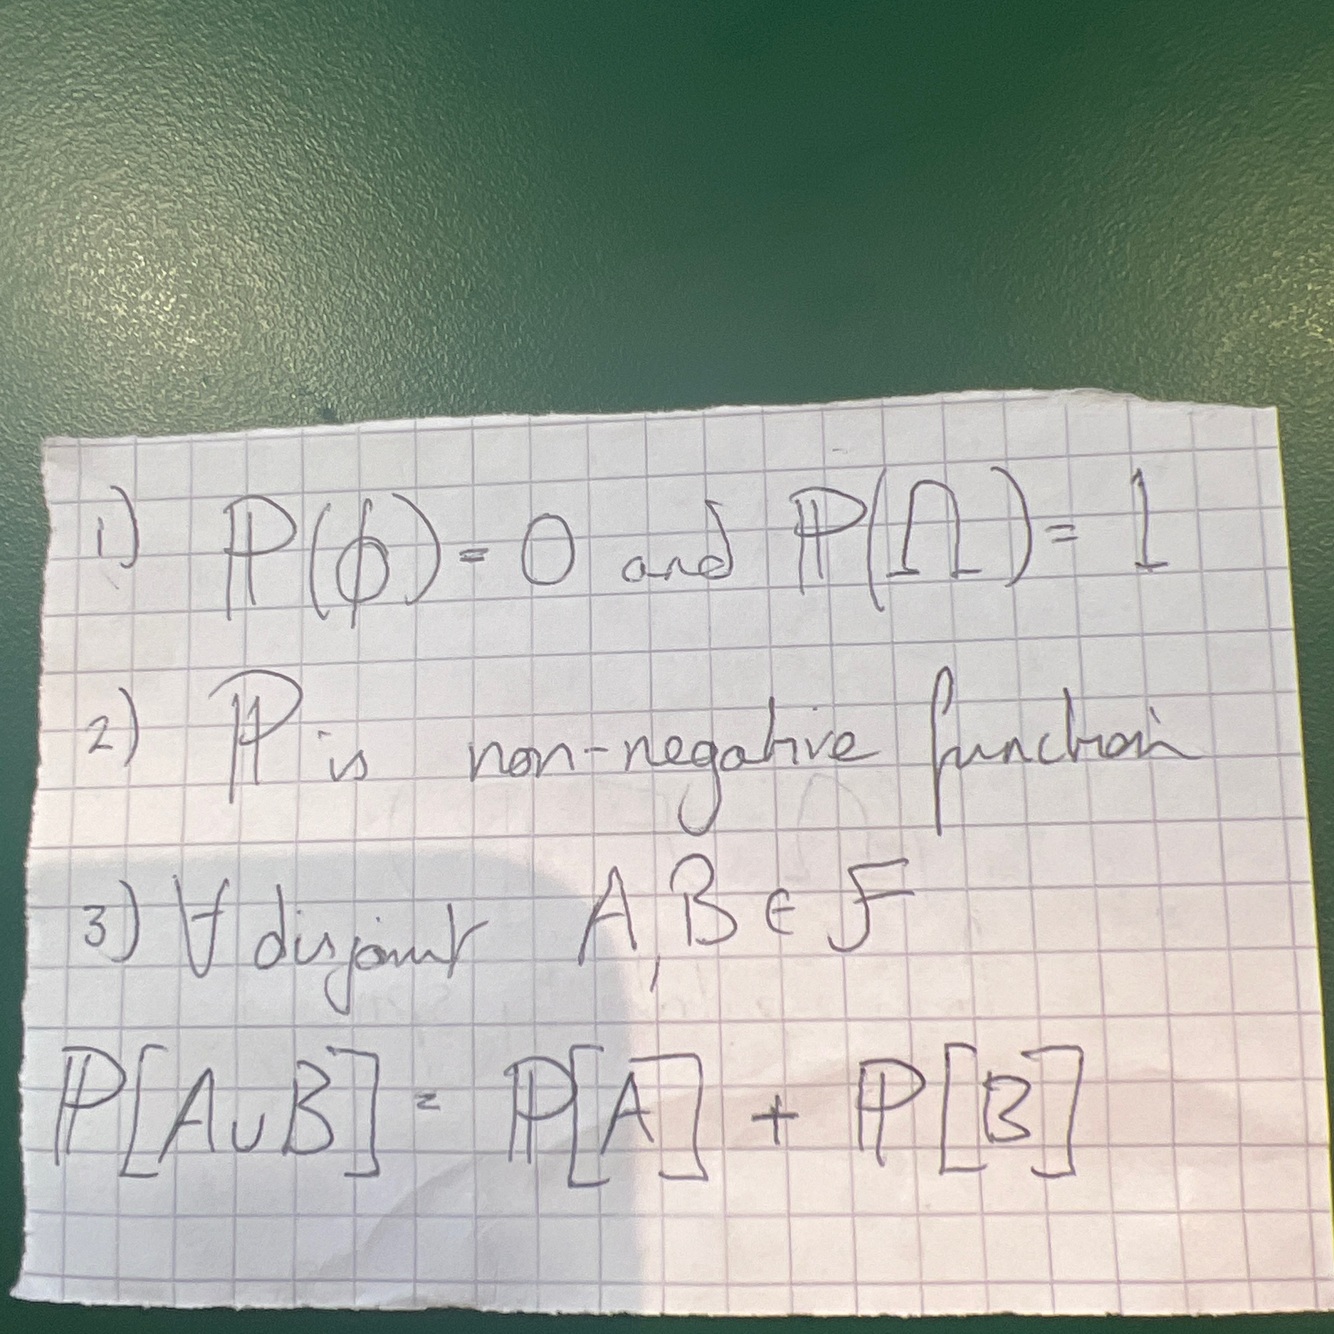 1) ℙ(ϕ) = 0 and ℙ(Ω) = 1
2) ℙ is non-negative function
3) ∀ disjoint A, B ∈ F
ℙ[A∪B] = ℙ[A] + ℙ[B]